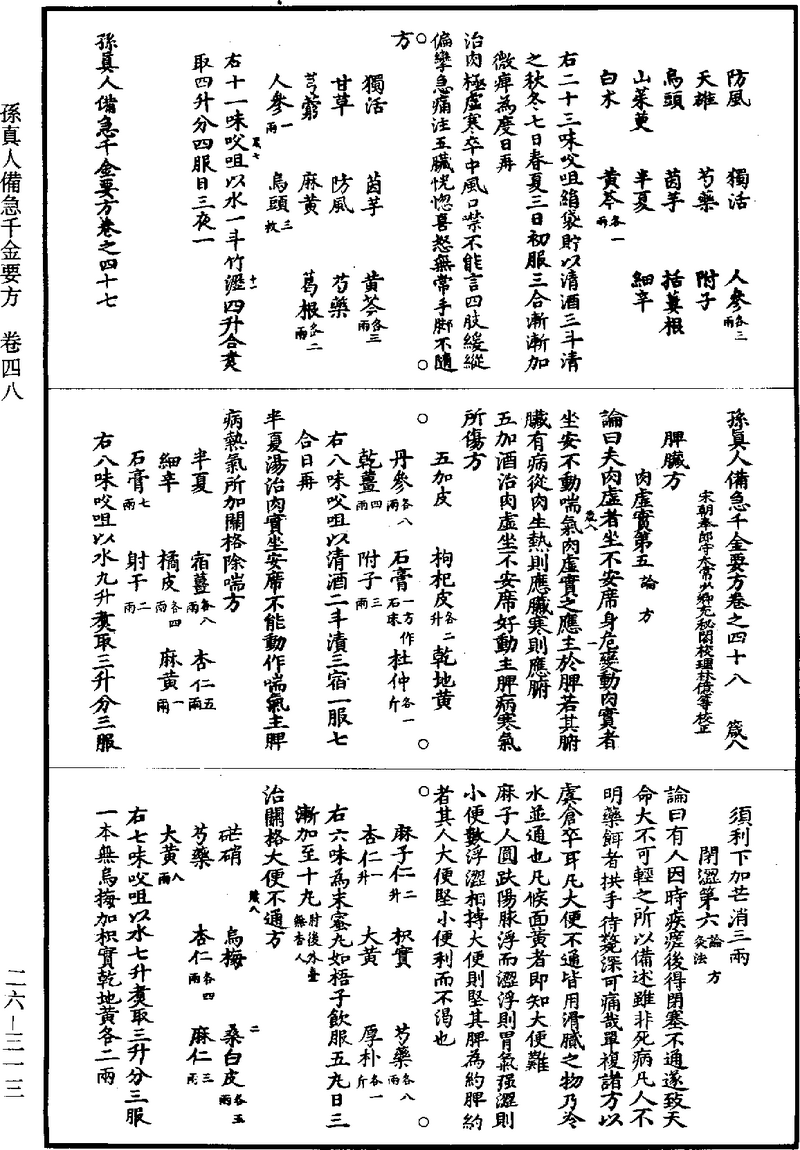 防風　獨活　人參各三兩
天雄　芍藥　附子
烏頭　茵芋　括蔞根
山茱萸　半夏　細辛
白朮　黃芩各一兩
右二十三味㕮咀絹袋貯以清酒三斗清
之秋冬七日春夏三日初服三合漸漸加
微痺為度日再
治肉極虛寒卒中風口噤不能言四肢緩縱
偏攣急痛注五臟恍惚喜怒無常手脚不隨
方
獨活　茵芋　黃芩各三兩
甘草　防風　芍藥
芎藭　麻黃　葛根各二兩
人參一兩　烏頭三枚
右十一味㕮咀以水一斗竹瀝四升合煑
取四升分四服日三夜一
孫真人備急千金要方卷之四十七
孫真人備急千金要方卷之四十八　箴八
宋朝奉郎守太常少卿充秘閣校理林億等校正
脾臟方
肉虛實第五　論　方
論曰夫肉虛者坐不安席身危變動肉實者
坐安不動喘氣肉虛實之應主於脾若其腑
臟有病從肉生熱則應臟寒則應腑
五加酒治肉虛坐不安席好動主脾病寒氣
所傷方
五加皮　枸杞皮各二升　乾地黃
丹參各八兩　石膏一方作石床　杜仲各一斤
乾薑四兩　附子三兩
右八味㕮咀以清酒二斗漬三宿一服七
合日再
半夏湯治肉實坐安席不能動作喘氣主脾
病熱氣所加關格除喘方
半夏　宿薑各八兩　杏仁五兩
細辛　橘皮各四兩　麻黃一兩
石膏七兩　射干二兩
右八味㕮咀以水九升煑取三升分三服
須利下加芒消三兩
閉澀第六　論　方　灸法
論曰有人因時疾瘥後得閉塞不通遂致夭
命大不可輕之所以備述雖非死病凡人不
明藥餌者拱手待斃深可痛哉單複諸方以
虞倉卒耳凡大便不通皆用滑膩之物乃冷
水並通也凡候面黃者即知大便難
麻子人圓趺陽脉浮而澀浮則胃氣强澀則
小便數浮澀相搏大便則堅其脾為約脾約
者其人大便堅小便利而不渴也
麻子仁二升　枳實　芍藥各八兩
杏仁一升　大黃　厚朴各一斤
右六味為末蜜丸如梧子飲服五丸日三
漸加至十九肘後外臺無杏人
治關格大便不通方
芒硝　烏梅　桑白皮各五兩
芍藥　杏仁各四兩　麻仁三兩
大黃八兩
右七味㕮咀以水七升煑取三升分三服
一本無烏梅加枳實乾地黃各二兩
孫真人備急千金要方　卷四八
二六—三一三